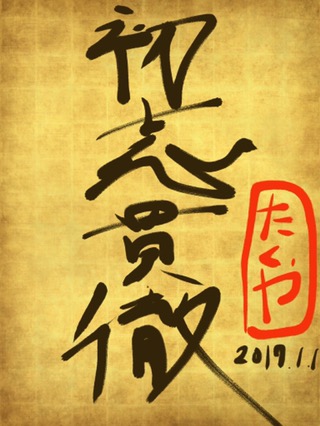 初志貫徹
たくや
2019.1.1